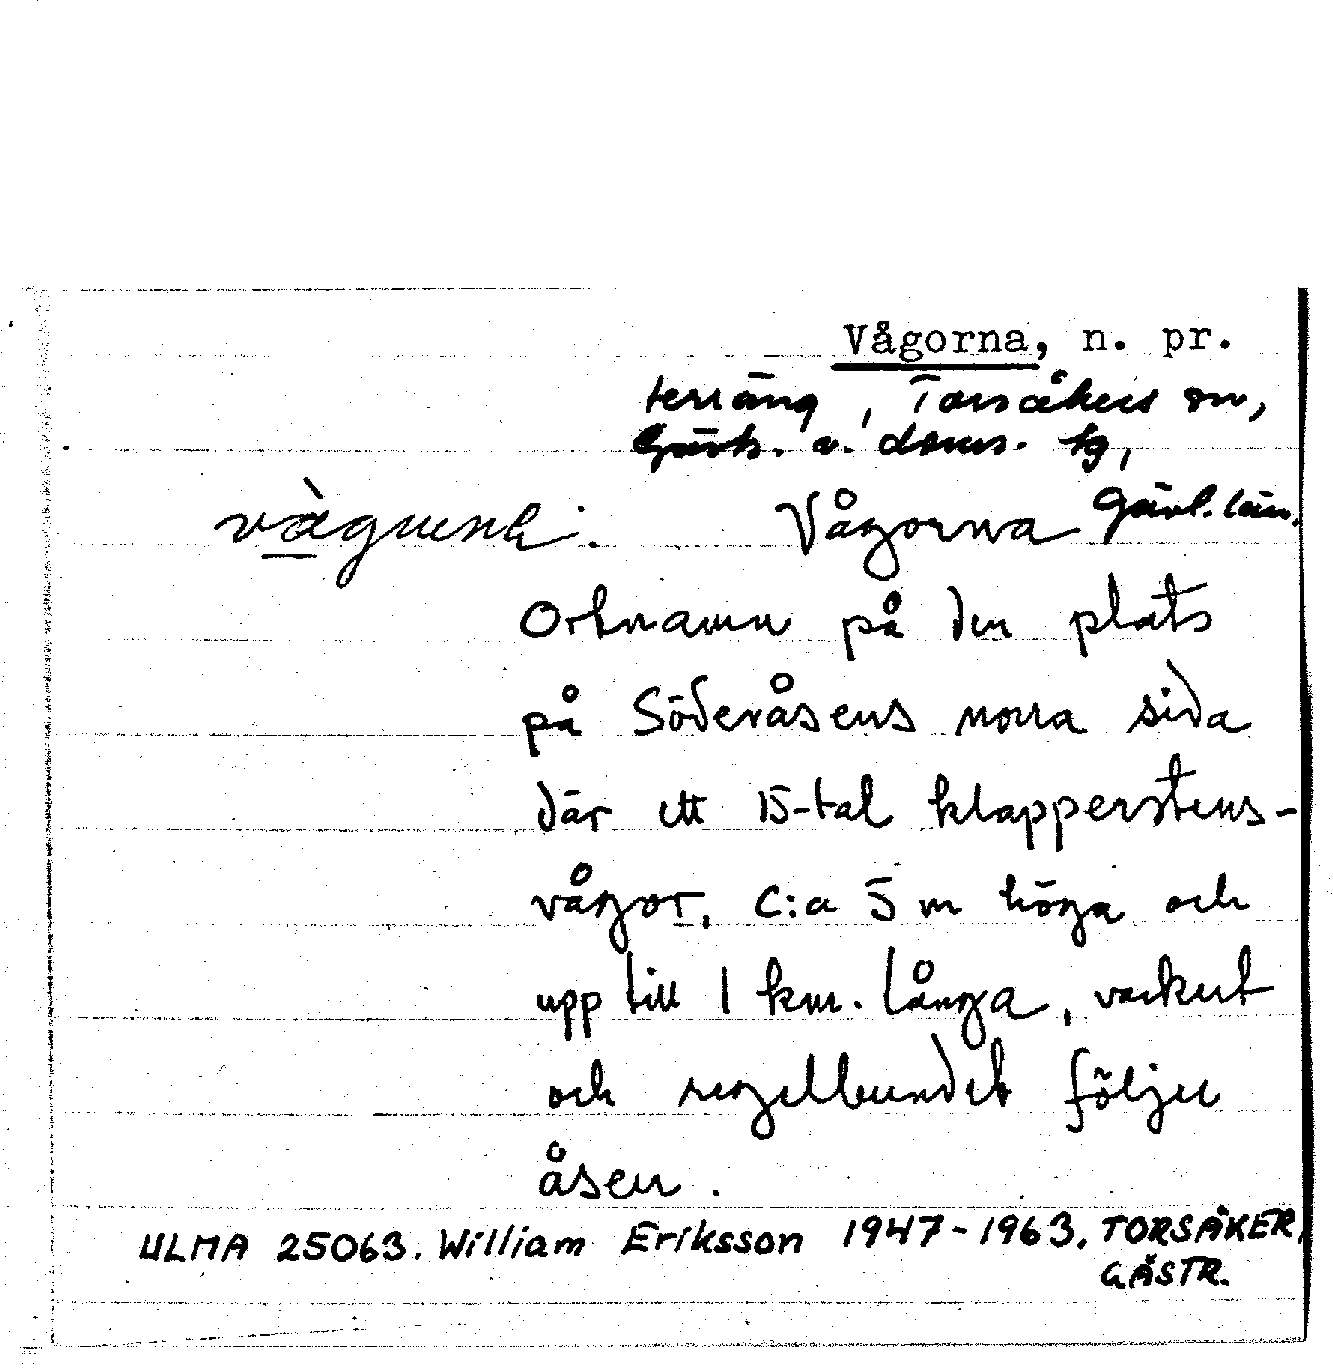 Vågorna, n. pr.
terräng, Torsåkers sn,
Gästr. v. doms. tg,
Gävl. län.
Vågorna
Ortnamn på den plats
på Söderåsens norra sida
där ett 15-tal klapperstens-
vågor, c:a 5 m höga och
upp till 1 km. långa, vackert
och regelbundet följer
åsen.
ULMA 25063. William Eriksson 1947-1963. TORSÅKER,
GÄSTR.